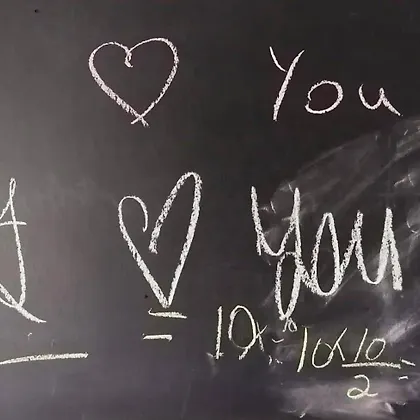 ♡ You
I ♡ You
10x
10x10
2